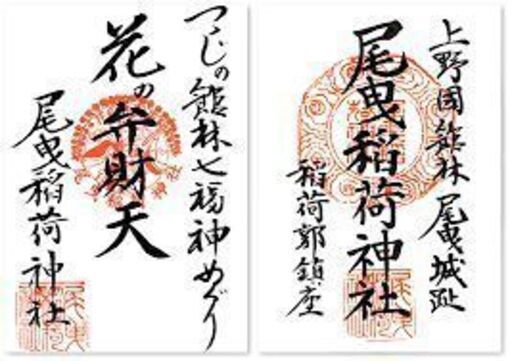 つゝじの館林七福神めぐり
花の弁財天
尾曳稲荷神社
上野國館林尾曳城趾
尾曳稲荷神社
稲荷郭鎮座